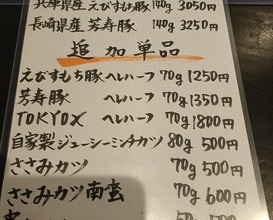 兵庫県産 えびすもち豚 140g 3050円
長崎県産 芳寿豚 140g 3250円
追加単品
えびすもち豚 ヘレハーフ 70g 1250円
芳寿豚 ヘレハーフ 70g 1350円
TOKYOX ヘレハーフ 70g 1800円
自家製ジューシーミンチカツ 80g 500円
ささみカツ 70g 500円
ささみカツ南蛮 70g 600円